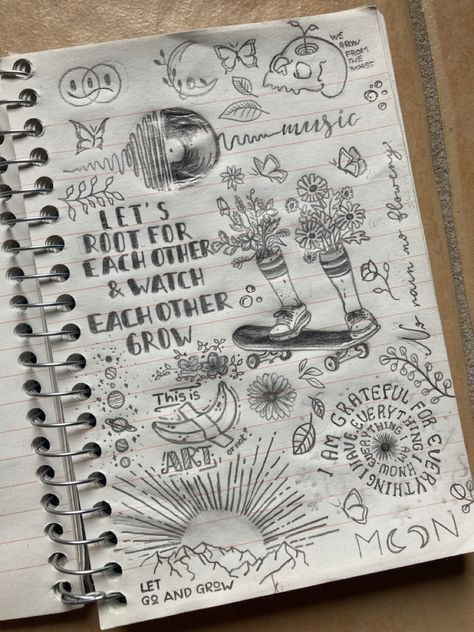 WE
GROW
FROM
THE
WORST
music
LET'S
ROOT FOR
EACH OTHER
& WATCH
EACH OTHER
GROW
No rain no flowers
This is
ART
I AM GRATEFUL FOR EVERYTHING I HAVE, EVERYTHING
MOON
LET
GO AND GROW